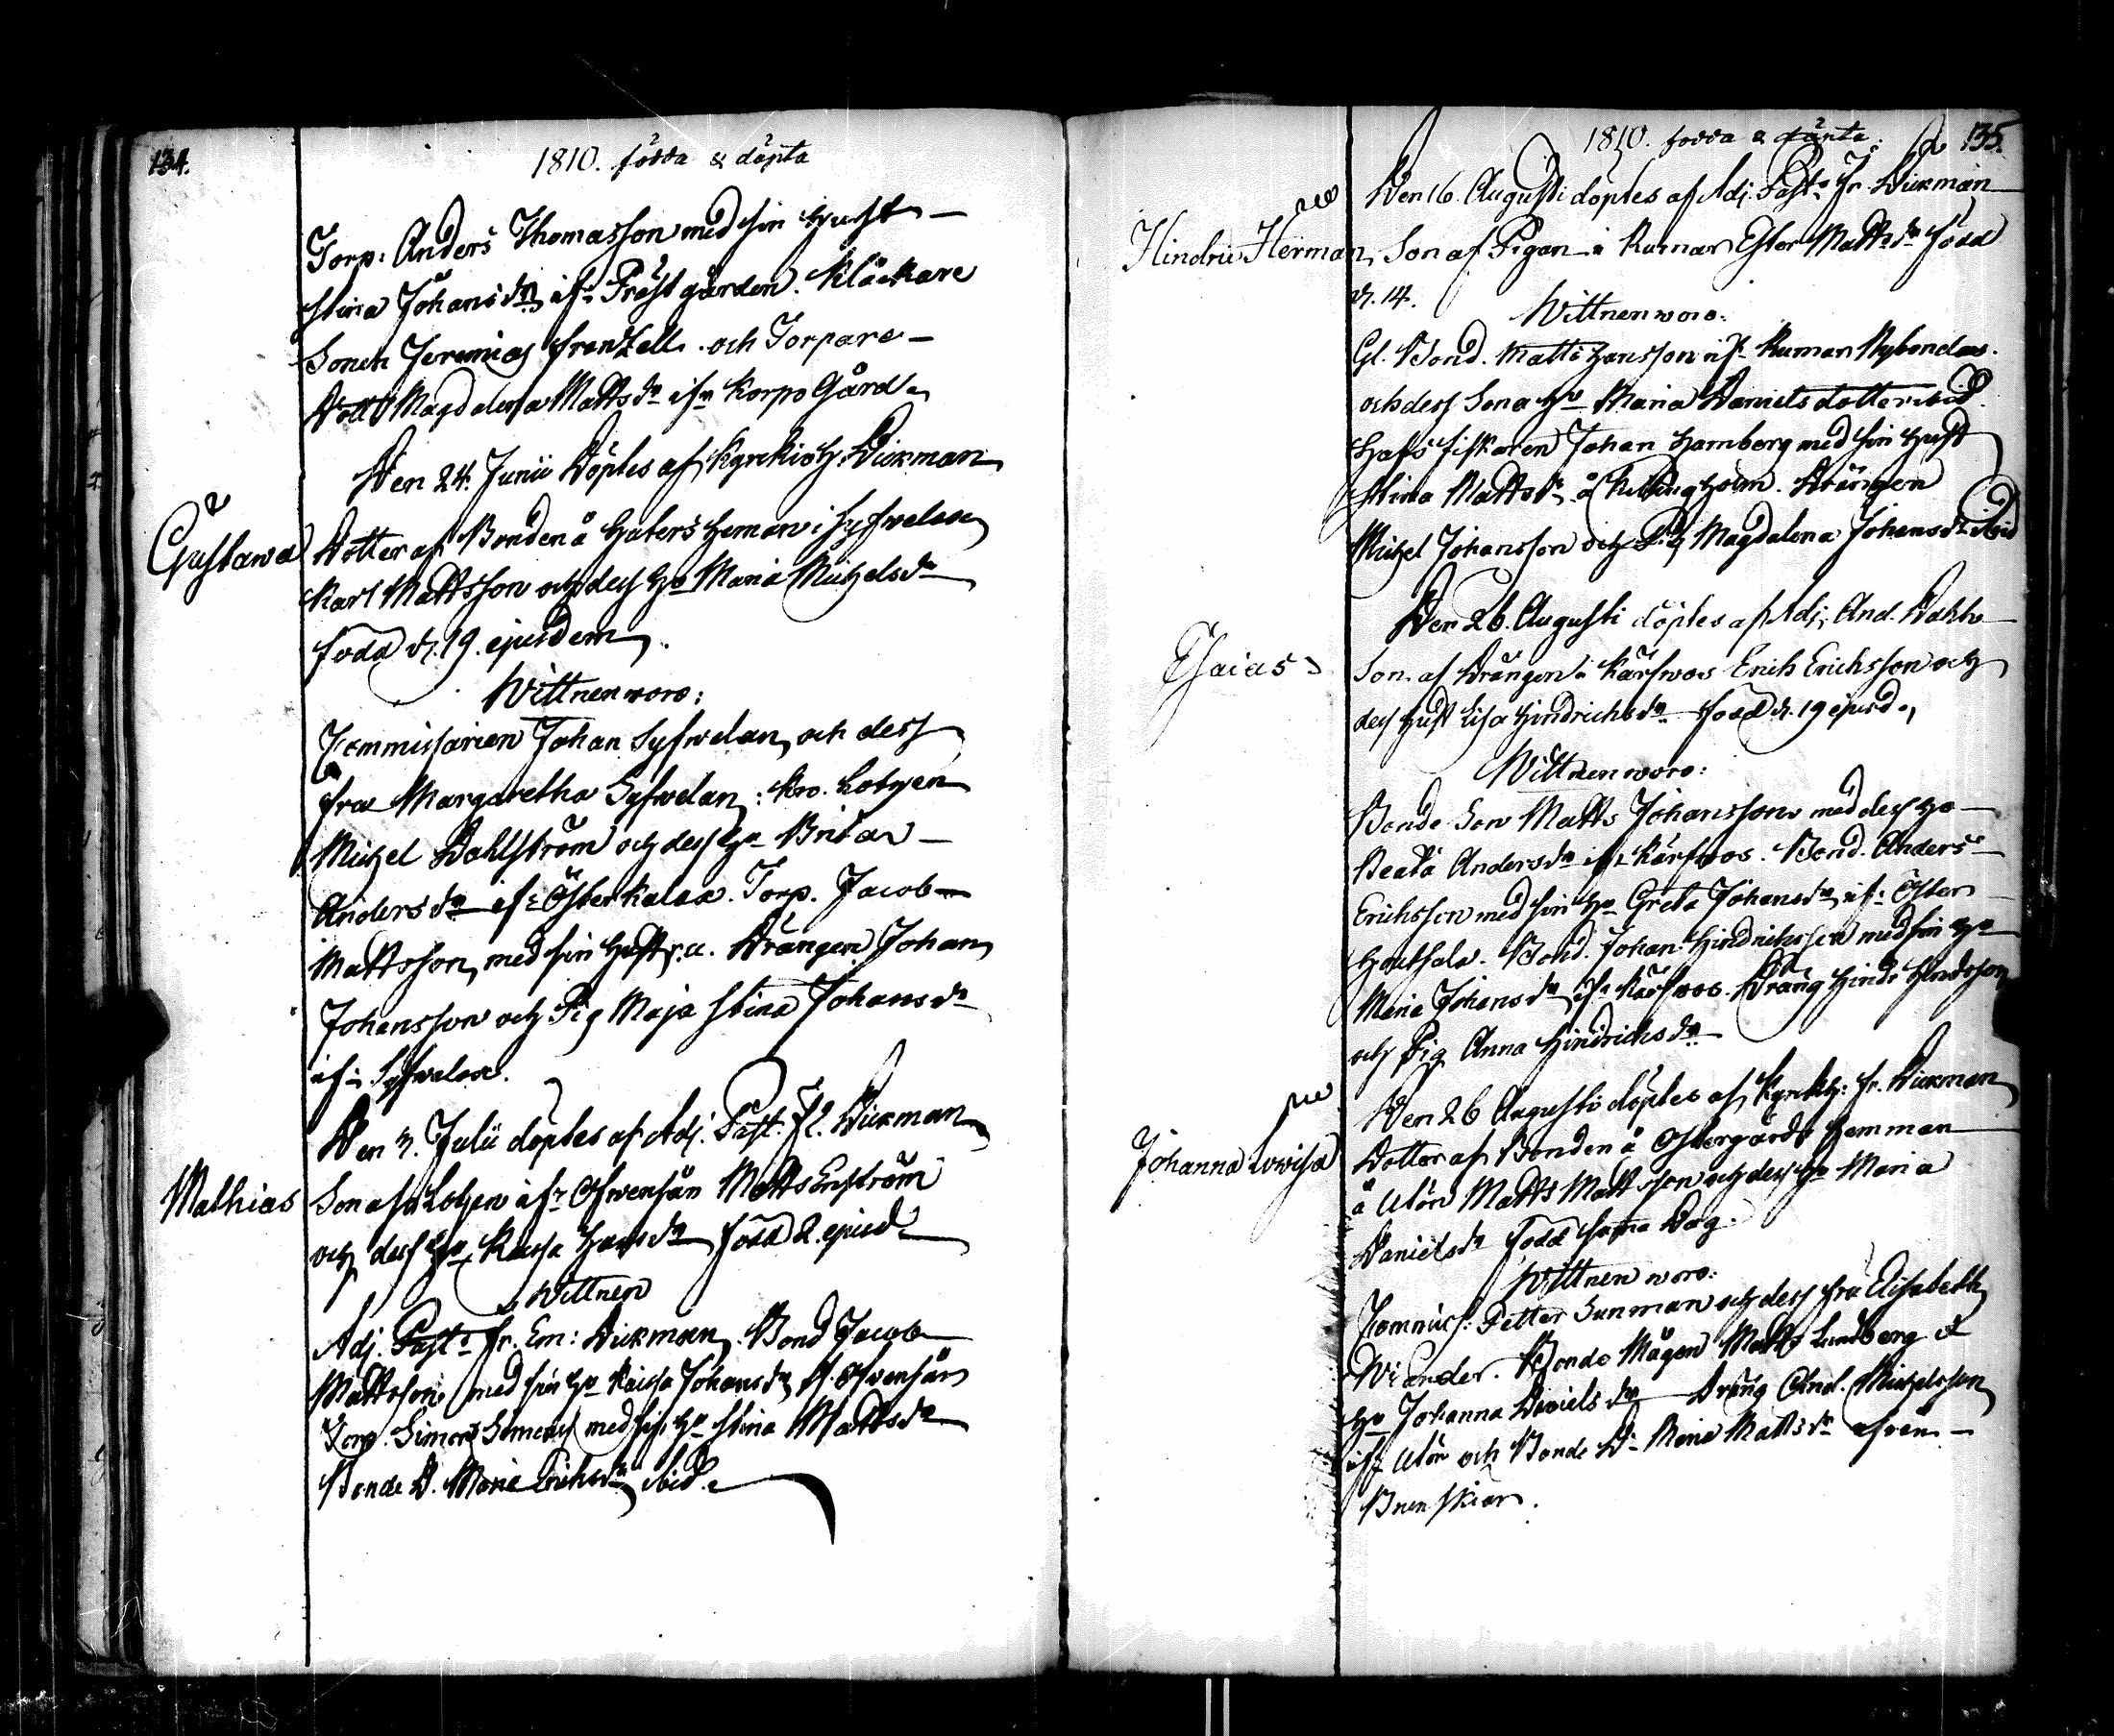 134.
1810. födda & döpta
Torp: Anders Thomasson med sin Hust
Stina Johansdr ifr Prästgården. Klåckare
Sonen Jeremias Frentzell och Torpare
Dott Magdalena Matts dr ifrn Korpo Gård.
Den 24. Junii Döptes af Kyrkioh. Dickman
Gustava Dotter af Bonden å Haters Heman i Syfwelax
Karl Mattsson och dess Ho Maria Michelsdr
född d. 19. ejusdem.
Wittnen woro:
Commissarien Johan Syfwelan och dess
fru Margaretha Syfwelan: Kro. Lotzen
Michel Dahlström och dess Ho Brita
Anders dr ifr Österkalax. Torp. Jacob
Mattsson med sin Hustru. Drängen Johan
Johansson och Pig Maja Stina Johans dr
ifr Syfwelax.
Den 3. Julii döptes af Adj. Past. Fr. Dickman
Mathias Son af Lotzen ifr Ofwensån Matts Enström
och dess Ho Kaisa Hans dr född 2. ejusd.
Wittnen
Adj. Past: Fr. Em: Dickman. Bond Jacob
Mattsson med sin Ho Kaisa Johansdr fr. Ofwensån
Torp. Simon Simons med sin Ho Stina Matts dr
Bonde D. Maria Erichsdr ibid.
1810. födda & döpta. 135.
Den 16. Augusti döptes af Adj. Past: Fr. Dickman
Hindric Herman Son af Pigan i Rumar Ester Matts dr född
d. 14.
Wittnen woro:
Gl. Bond. Matts Hansson ifr Rumar Nybondas.
och dess Sona Ho Maria Danielsdotter ibid.
Hafs fiskaren Johan Hamberg med sin Hust
Stina Matts dr å holm. Drängen
Michel Johansson och Pig Magdalena Johansdr ibid
Den 26. Augusti döptes af Adj. And. Dahl
Esaias Son af Drängen i Kärfwos Erich Erichsson och
dess Hust Lisa Hindrichs dr född d. 19 ejusd.
Wittnen woro:
Bonde Son Matts Johansson med dess Ho
Beata Anders dr ifr Kärfwos. Bond. Anders
Erichsson med sin Ho Greta Johansdr ifr Öster
Houtsala. Bond. Johan Hindrichsson med sin Ho
Maria Johans dr ifr Kärfwos. Dräng Hindr Hindsson
och Pig Anna Hindrichs dr
Den 26 Augusti döptes af Kyrkh: Fr. Dickman
Johanna Lovisa Dotter af Bonden å Östergårds Hemman
å Utön Matts Mattsson och dess Ho Maria
Daniels dr född samma Dag.
Wittnen woro:
Commiss: Petter Sunman och dess fru Elisabeth
Wiander. Bonde Mågen Matts Lundberg &
Ho Johanna Daniels dr Dräng And. Michelsson
ifr Utön och Bonde Dr Maria Matts dr
Brunskiär.